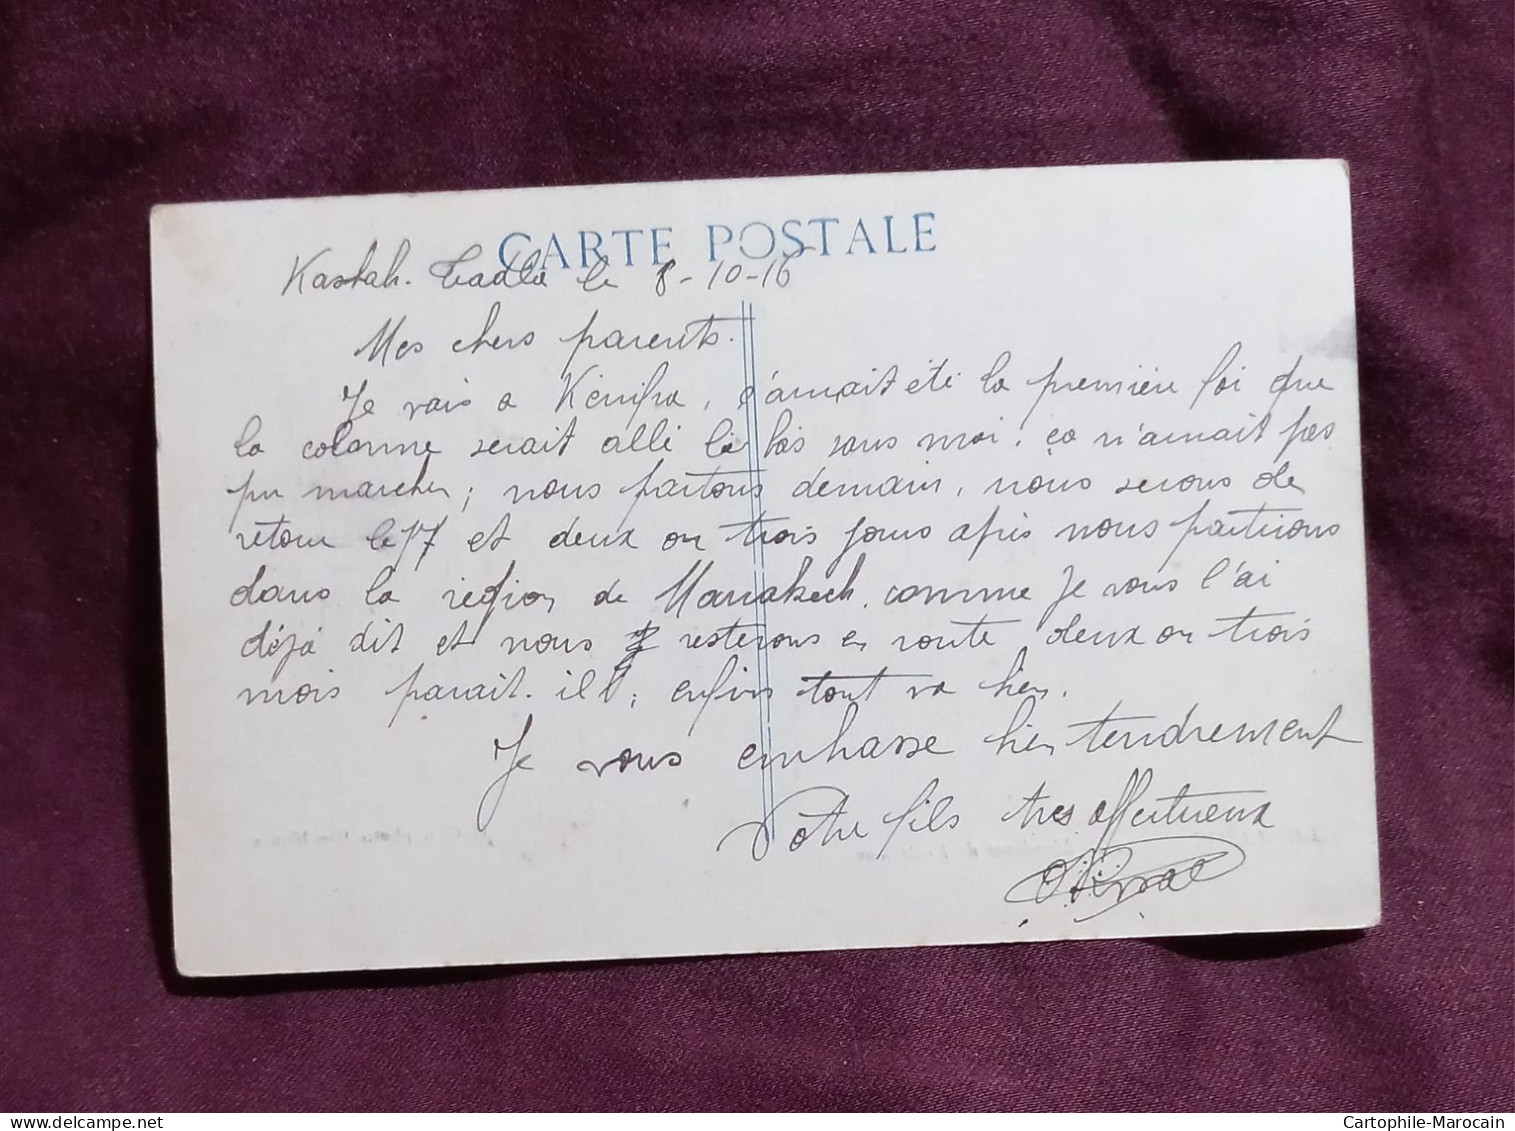 CARTE POSTALE
Kasbah. Tadla le 8-10-16
Mes chers parents.
Je vais a Kénifra, ç'aurait été la première foi que
la colonne serait allé là bas sans moi. ça n'aurait pas
pu marcher; nous partons demain, nous serons de
retour le 17 et deux ou trois jours après nous partirons
dans la région de Marrakech, comme je vous l'ai
déjà dit et nous resterons en route deux ou trois
mois parait-il; enfin tout va bien.
Je vous embrasse bien tendrement
Votre fils très affectueux
www.delcampe.net
Cartophile-Marocain